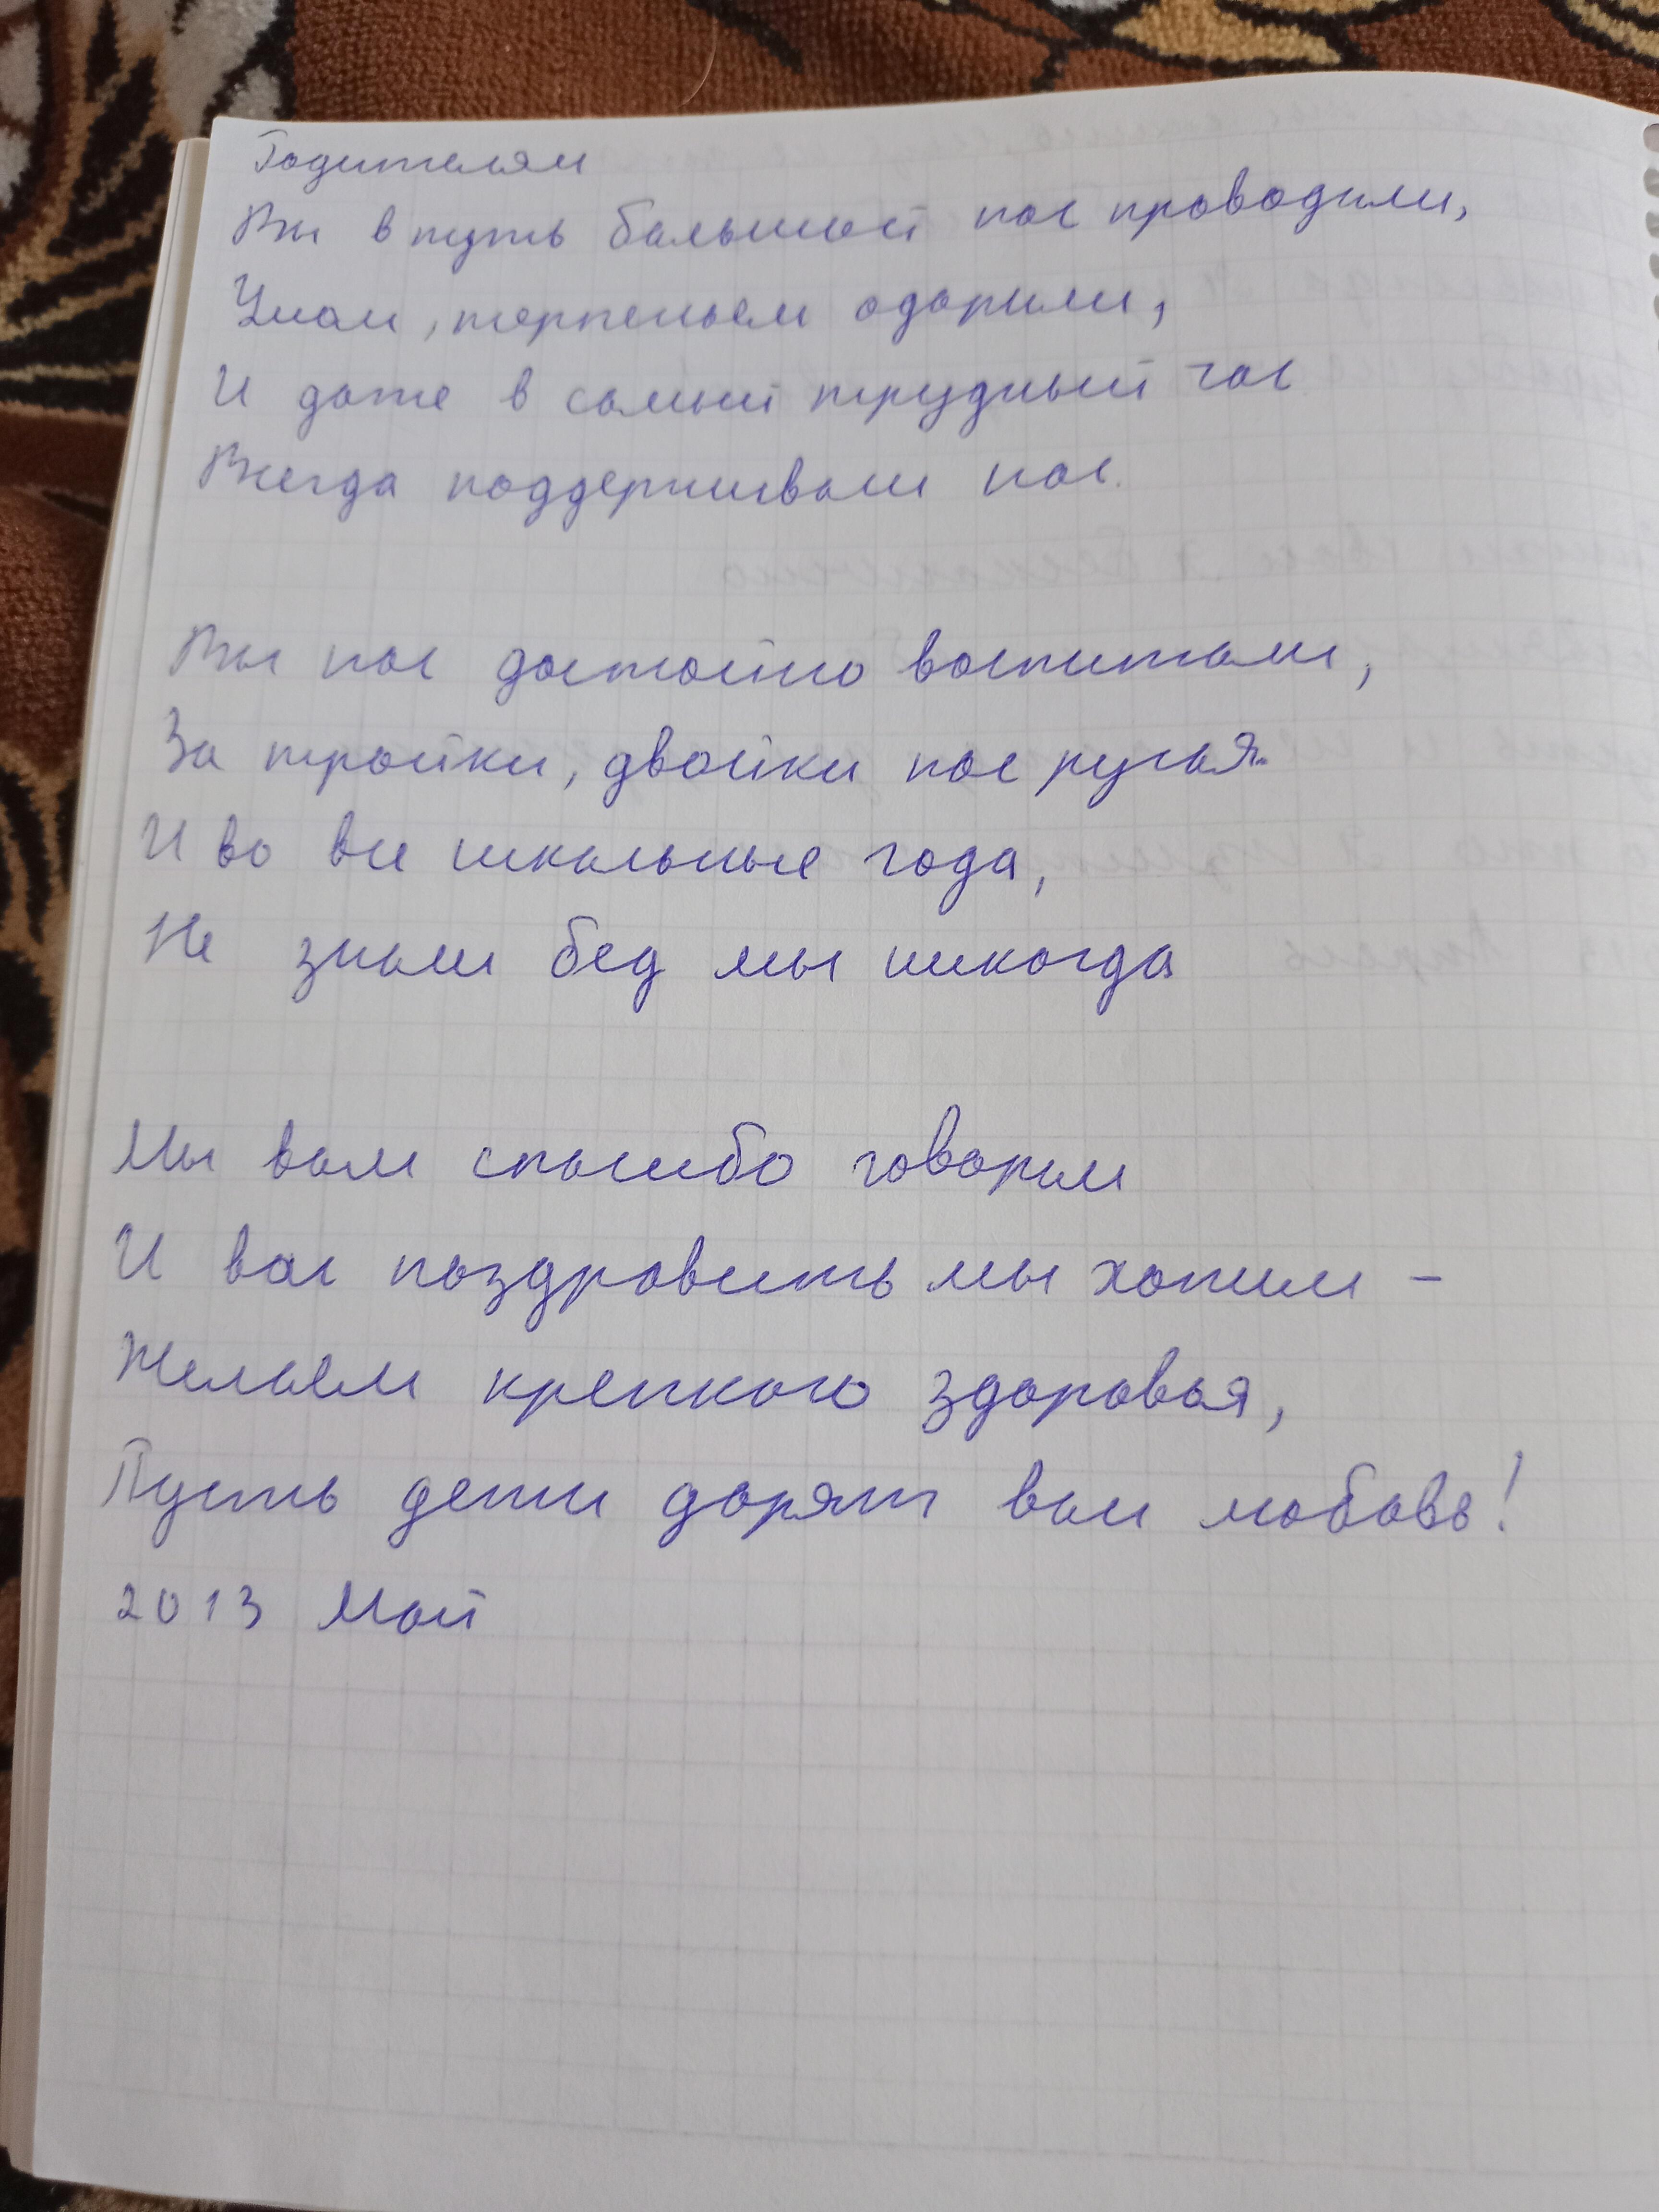 Родителям
Вы в путь большой нас проводили,
Умом, терпеньем одарили,
И даже в самый трудный час
Всегда поддерживали нас.
Вы нас достойно воспитали,
За тройки, двойки нас ругая
И во все школьные года,
Не знали бед мы никогда
Мы вам спасибо говорим
И вас поздравить мы хотим -
Желаем крепкого здоровья,
Пусть дети дарят вам любовь!
2013 Май